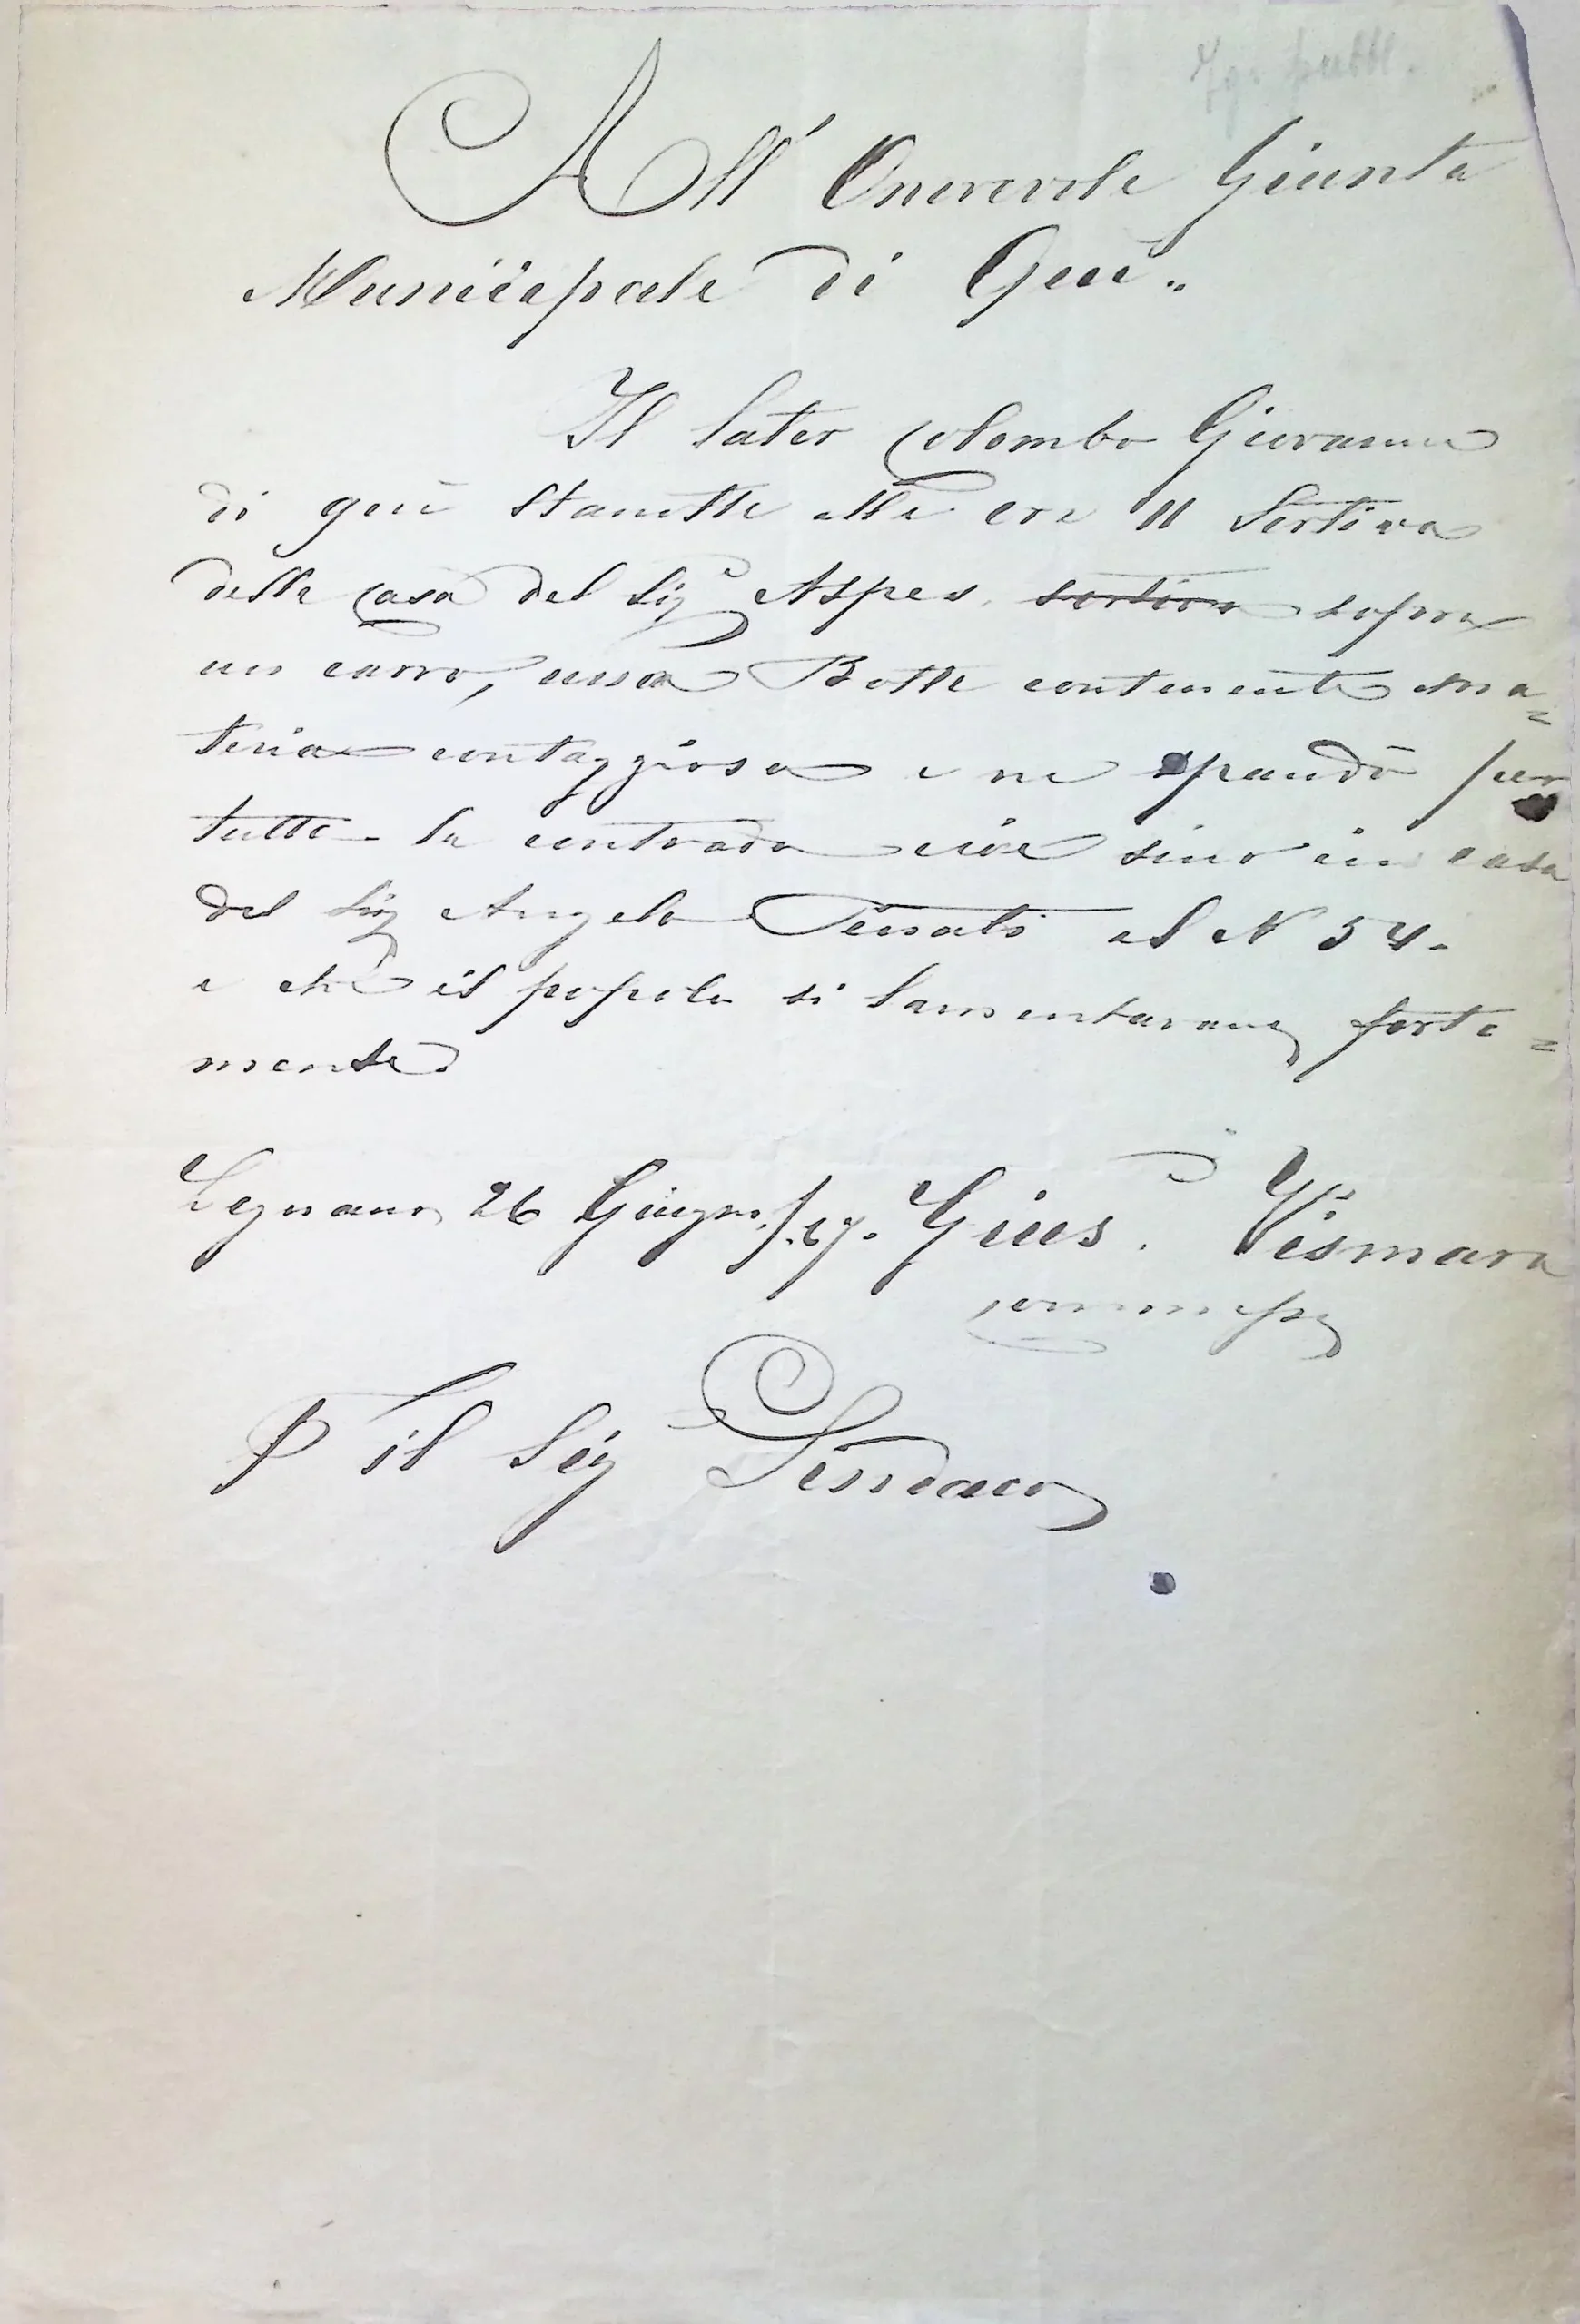 Ig. pubbl.
All' Onorevole Giunta
Municipale di Quì "
Il later Colombo Giovanni
di quì stanotte alle ore 11 Sortiva
della Casa del Sig.e Aspes, sortiva sopra
un carro, una Botte contenente ma=
teria contaggiosa e ne spandò per
tutta la contrada cioè sino in casa
del Sig Angelo Tenati al N 54.
e che il popolo si lamentarano forte=
mente.
Legnano 26 Giugno /67. Gius. Vismara
commesso
P il Sig Sindaco